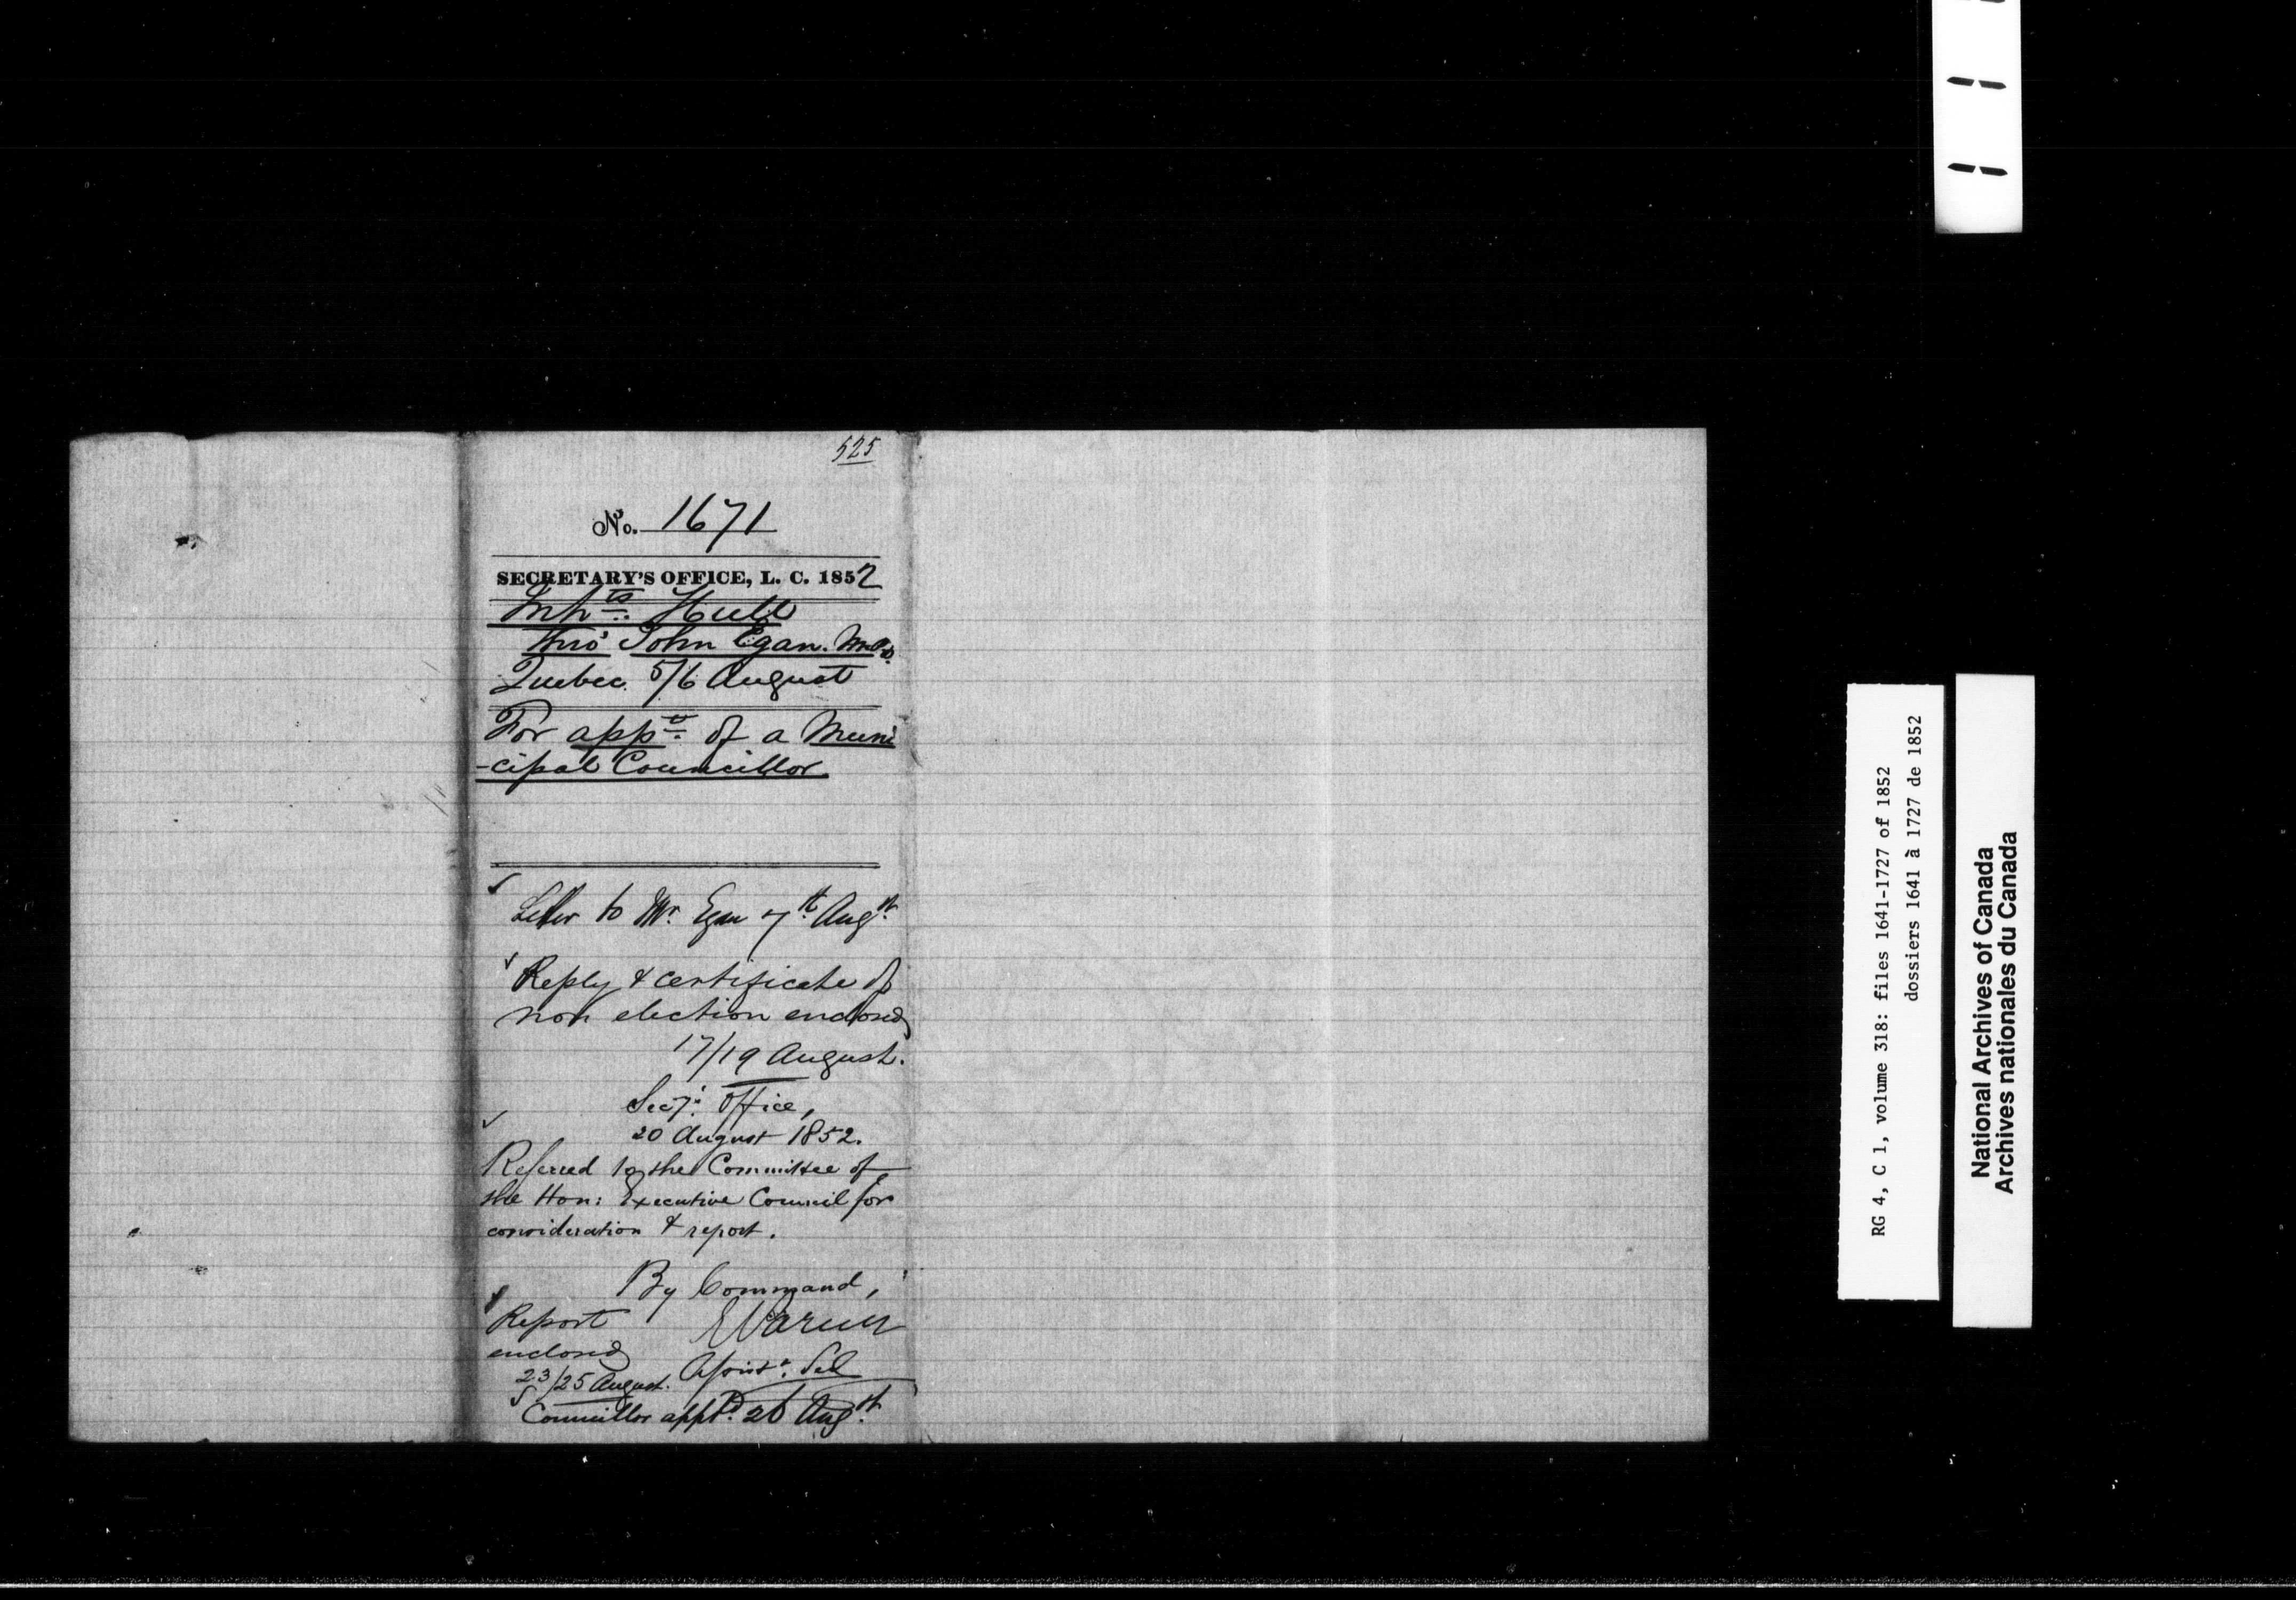 525
No. 1671
SECRETARY'S OFFICE, L. C. 1852
Inhts. Hull
thro' John Egan. M.P.P.
Quebec 5/6 August
For appt. of a Muni
-cipal Councillor.
Letter to Mr. Egan 7th. Augst.
Reply & certificate of
non election enclosed
17/19 August.
Secy's. Office,
20 August 1852.
Referred to the Committee of
the Hon: Executive Council for
consideration & report.
By Command,
Report
enclosed
23/25 August.
Assist. Sec
Councillor appd. 26 Augst.
RG 4, C 1, volume 318: files 1641-1727 of 1852
dossiers 1641 à 1727 de 1852
National Archives of Canada
Archives nationales du Canada